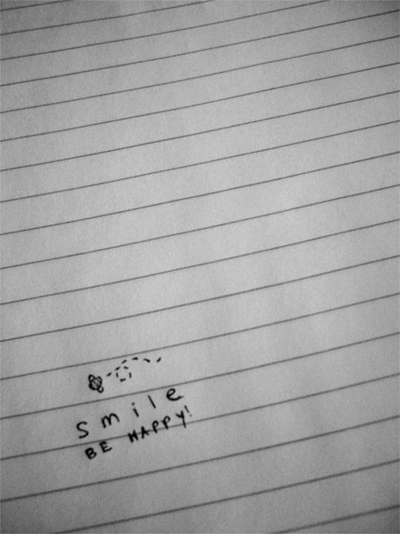 smile
BE HAPPY!